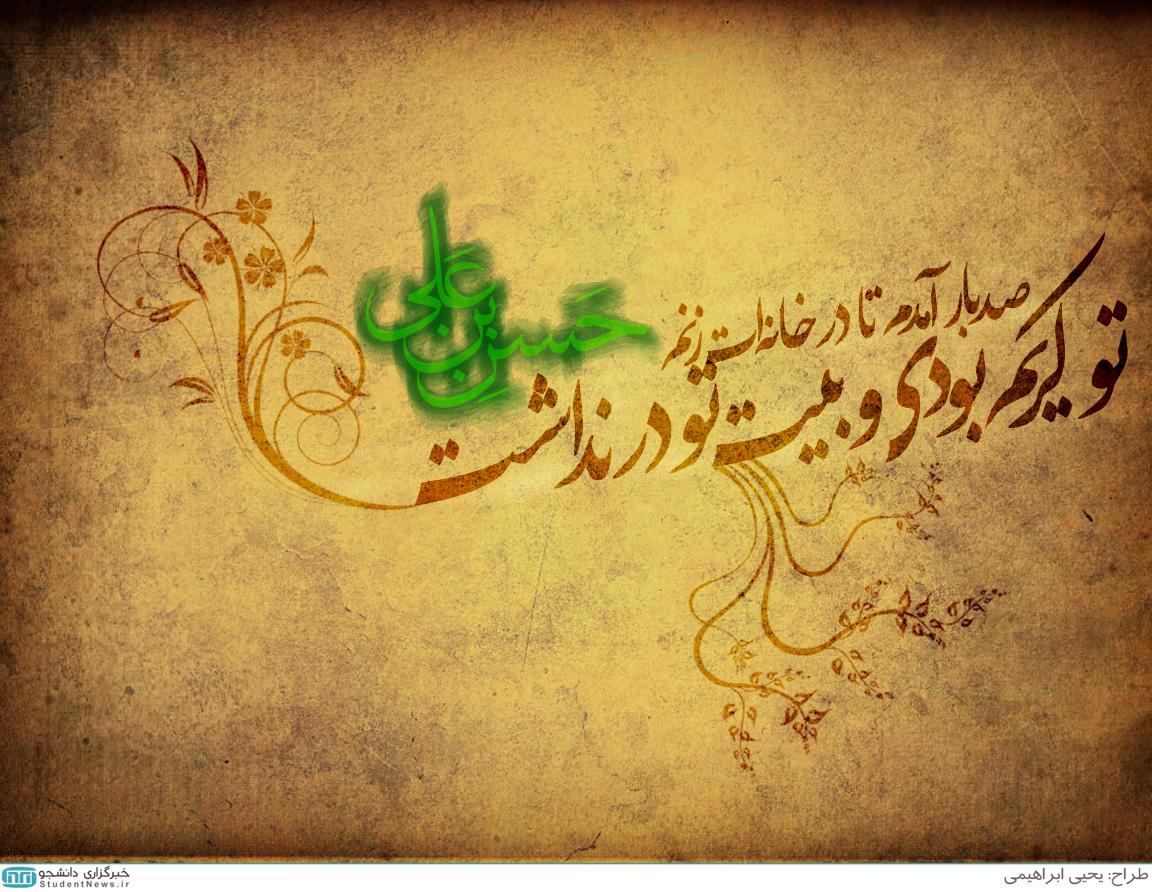 صدبار آمدم تا در خانه‌ات زنم
تو کریم بودی و بیت تو در نداشت
حَسن بن عَلی
طراح: یحیی ابراهیمی
خبرگزاری دانشجو
StudentNews.ir